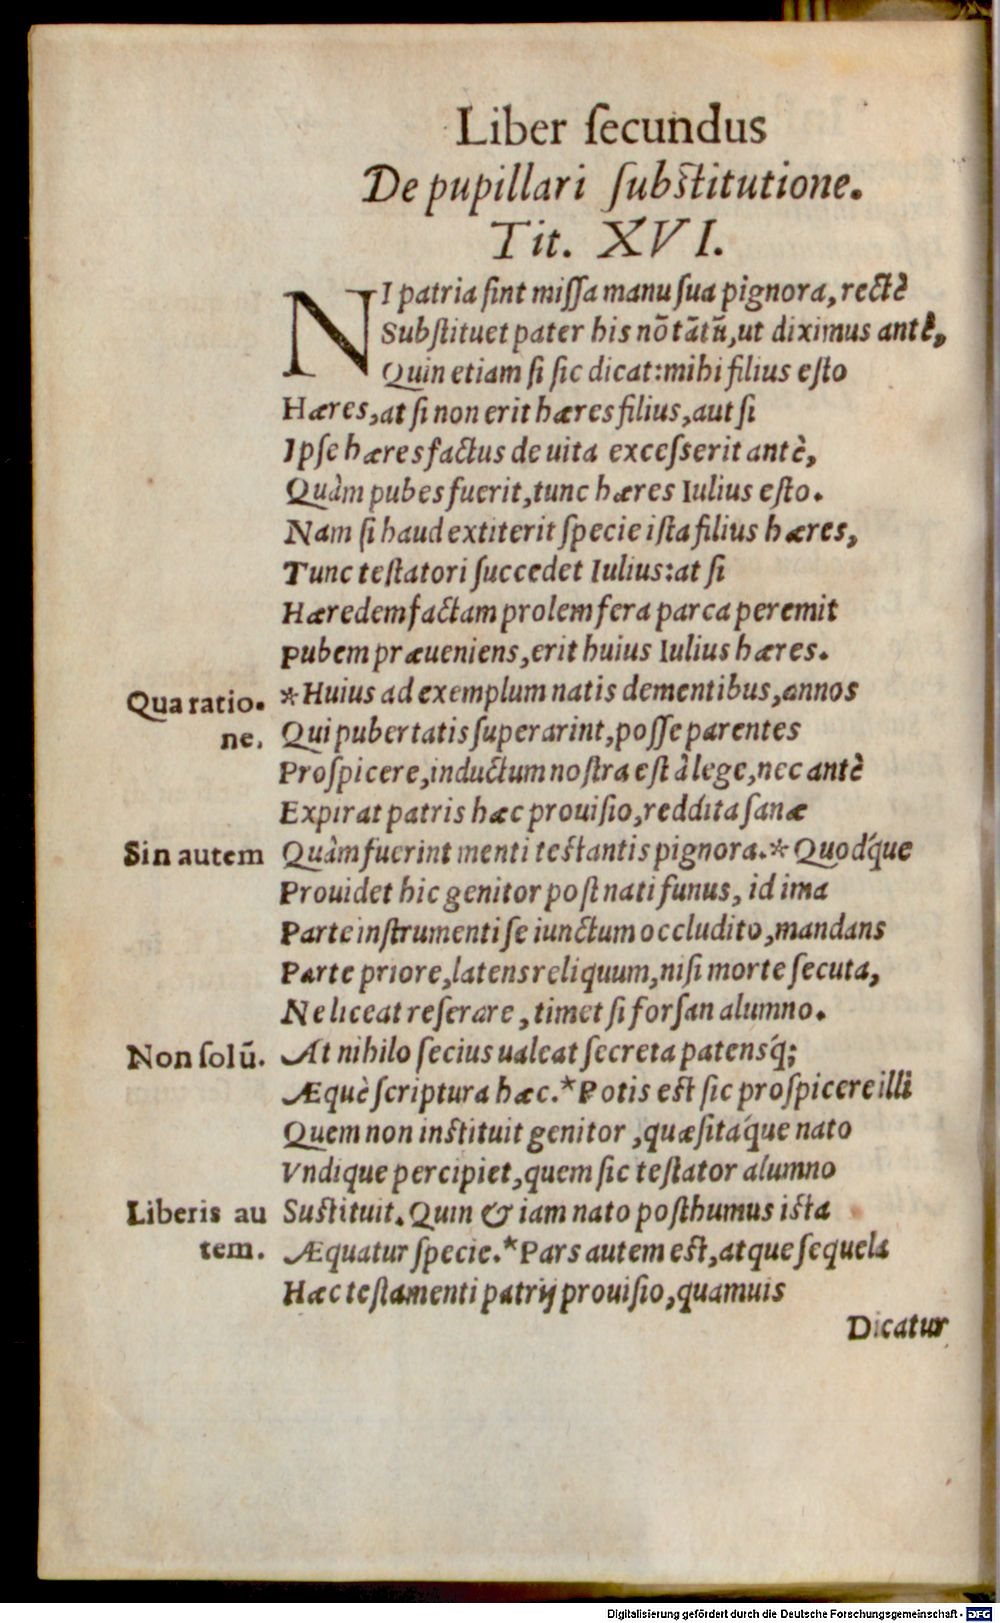 Liber ſecundus
De pupillari ſubſtitutione.
Tit. XVI.
NI patria ſint miſſa manu ſua pignora, rectè
Subſtituet pater his nõ tãtũ, ut diximus antè,
Quin etiam ſi ſic dicat: mihi filius eſto
Hæres, at ſi non erit hæres filius, aut ſi
Ipſe hæres factus de uita exceſſerit antè,
Quàm pubes fuerit, tunc hæres Iulius eſto.
Nam ſi haud extiterit ſpecie iſta filius hæres,
Tunc teſtatori ſuccedet Iulius: at ſi
Hæredem factam prolem fera parca peremit
Pubem præueniens, erit huius Iulius hæres.
Qua ratio. *Huius ad exemplum natis dementibus, annos
ne. Qui pubertatis ſuperarint, poſſe parentes
Proſpicere, inductum noſtra eſt à lege, nec antè
Expirat patris hæc prouiſio, reddita ſanæ
Sin autem Quàm fuerint menti teſtantis pignora.* Quod́que
Prouidet hic genitor poſt nati funus, id ima
Parte inſtrumenti ſe iunctum occludito, mandans
Parte priore, latens reliquum, niſi morte ſecuta,
Ne liceat reſerare, timet ſi forſan alumno.
Non ſolũ. At nihilo ſecius ualeat ſecreta patensq́;
Æquè ſcriptura hæc.* Potis eſt ſic proſpicere illi
Quem non inſtituit genitor, quæſitáque nato
Vndique percipiet, quem ſic teſtator alumno
Liberis au Suſtituit. Quin & iam nato poſthumus iſta
tem. Æquatur ſpecie.* Pars autem eſt, atque ſequela
Hæc teſtamenti patrij prouiſio, quamuis
Dicatur
Digitalisierung gefördert durch die Deutsche Forschungsgemeinschaft - DFG